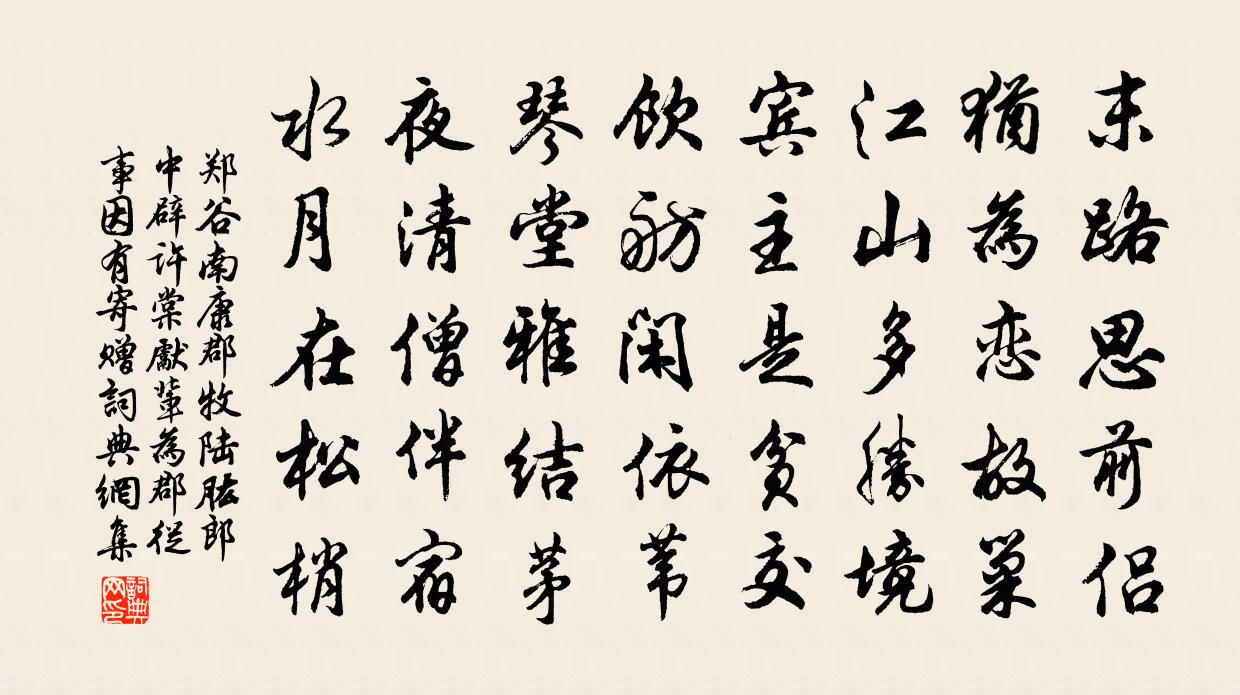 末路思前侣
猶為恋故巢
江山多勝境
宾主是貧交
飲舫閑依苇
琴堂雅结茅
夜清僧伴宿
水月在松梢
郑谷南康郡牧陆肱郎
中辟许棠獻輩為郡從
事因有寄赠詞典網集